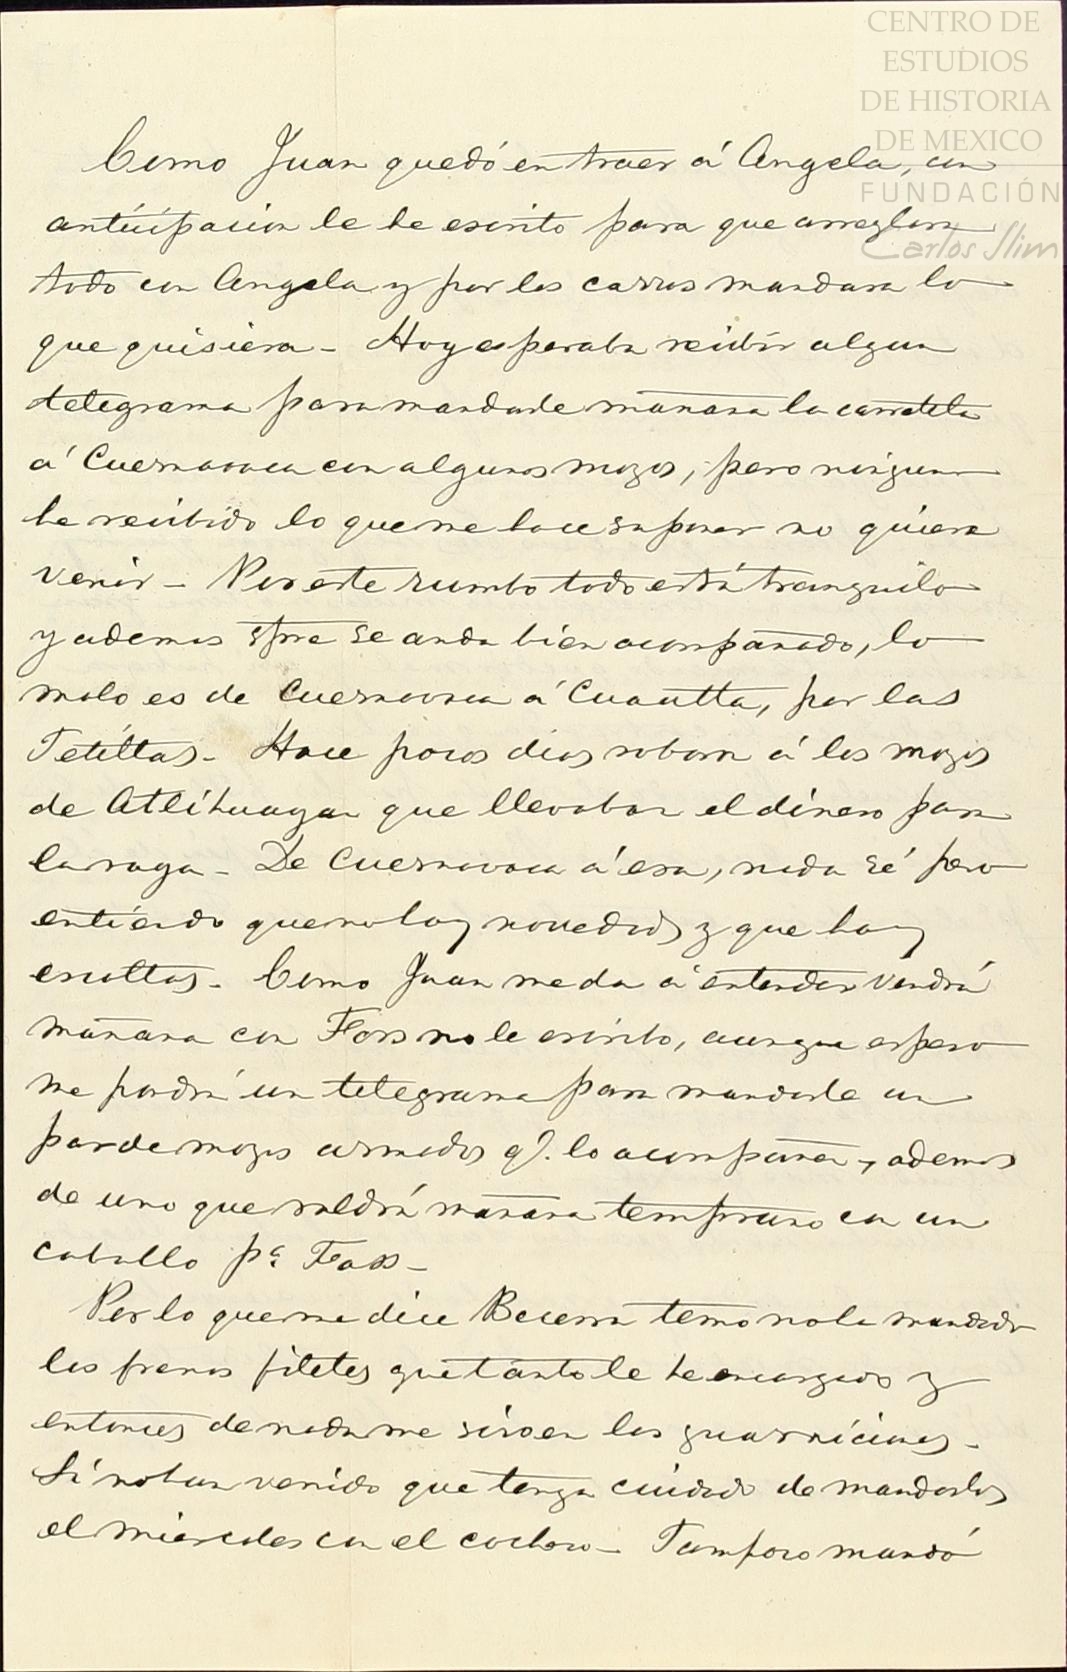 CENTRO DE
ESTUDIOS
DE HISTORIA
DE MEXICO
FUNDACIÓN
Carlos Slim
Como Juan quedó en traer á Angela, con
anticipacion le he escrito para que arreglara
todo con Angela y por los carros mandara lo
que quisiera - Hoy esperaba recibir algun
telegrama para mandarle mañana la carretela
á Cuernavaca con algunos mozos, pero ninguno
he recibido lo que me hace suponer no quiera
venir - Por este rumbo todo está tranquilo
y ademas spre se anda bien acompañado, lo
malo es de Cuernavaca á Cuautla, por las
Tetillas - Hace pocos dias robaron á los mozos
de Atlihuayan que llevaban el dinero para
la raya - De Cuernavaca á esa, nada sé pero
entiendo que no hay novedad y que hay
escoltas - Como Juan me da á entender vendrá
mañana con Foss no le escribo, aunque espero
me pondrá un telegrama para mandarle un
par de mozos armados q. lo acompañen, ademas
de uno que saldrá mañana temprano con un
caballo pa. Foss -
Por lo que me dice Becerra temo no ha mandado
los frenos filetes que tanto le he encargado y
entonces de nada me sirven las guarniciones -
Si no han venido que tenga cuidado de mandarlos
el miercoles con el cochero - Tampoco mandó